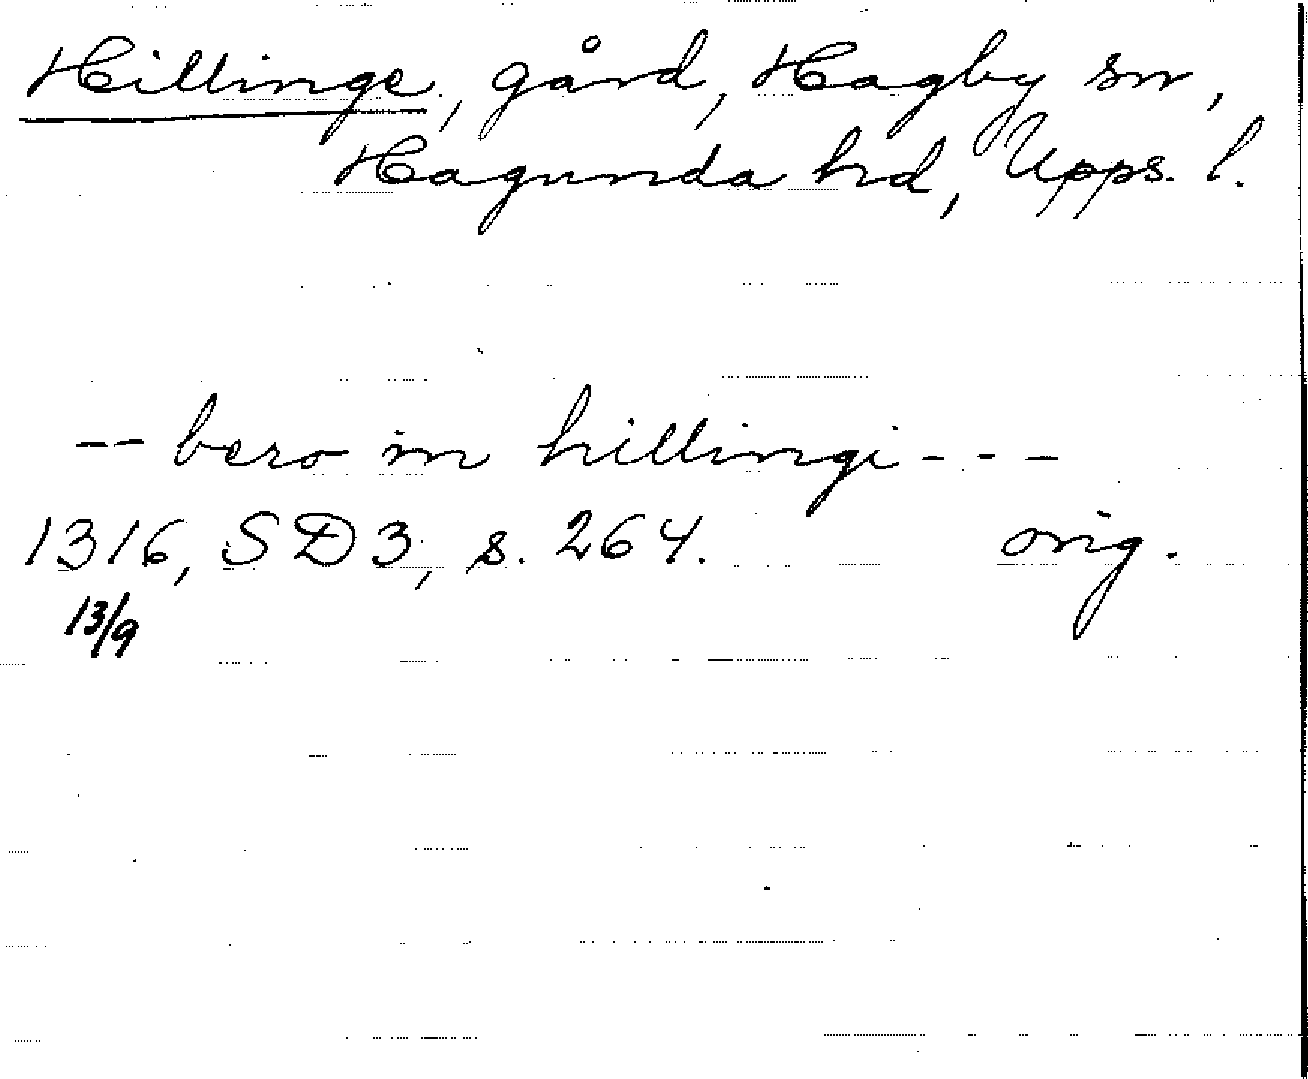 Hillinge, gård, Hagby sn,
Hagunda hd, Upps. l.
-- bero in hillingi - - -
1316, SD3, s. 264. orig.
13/9